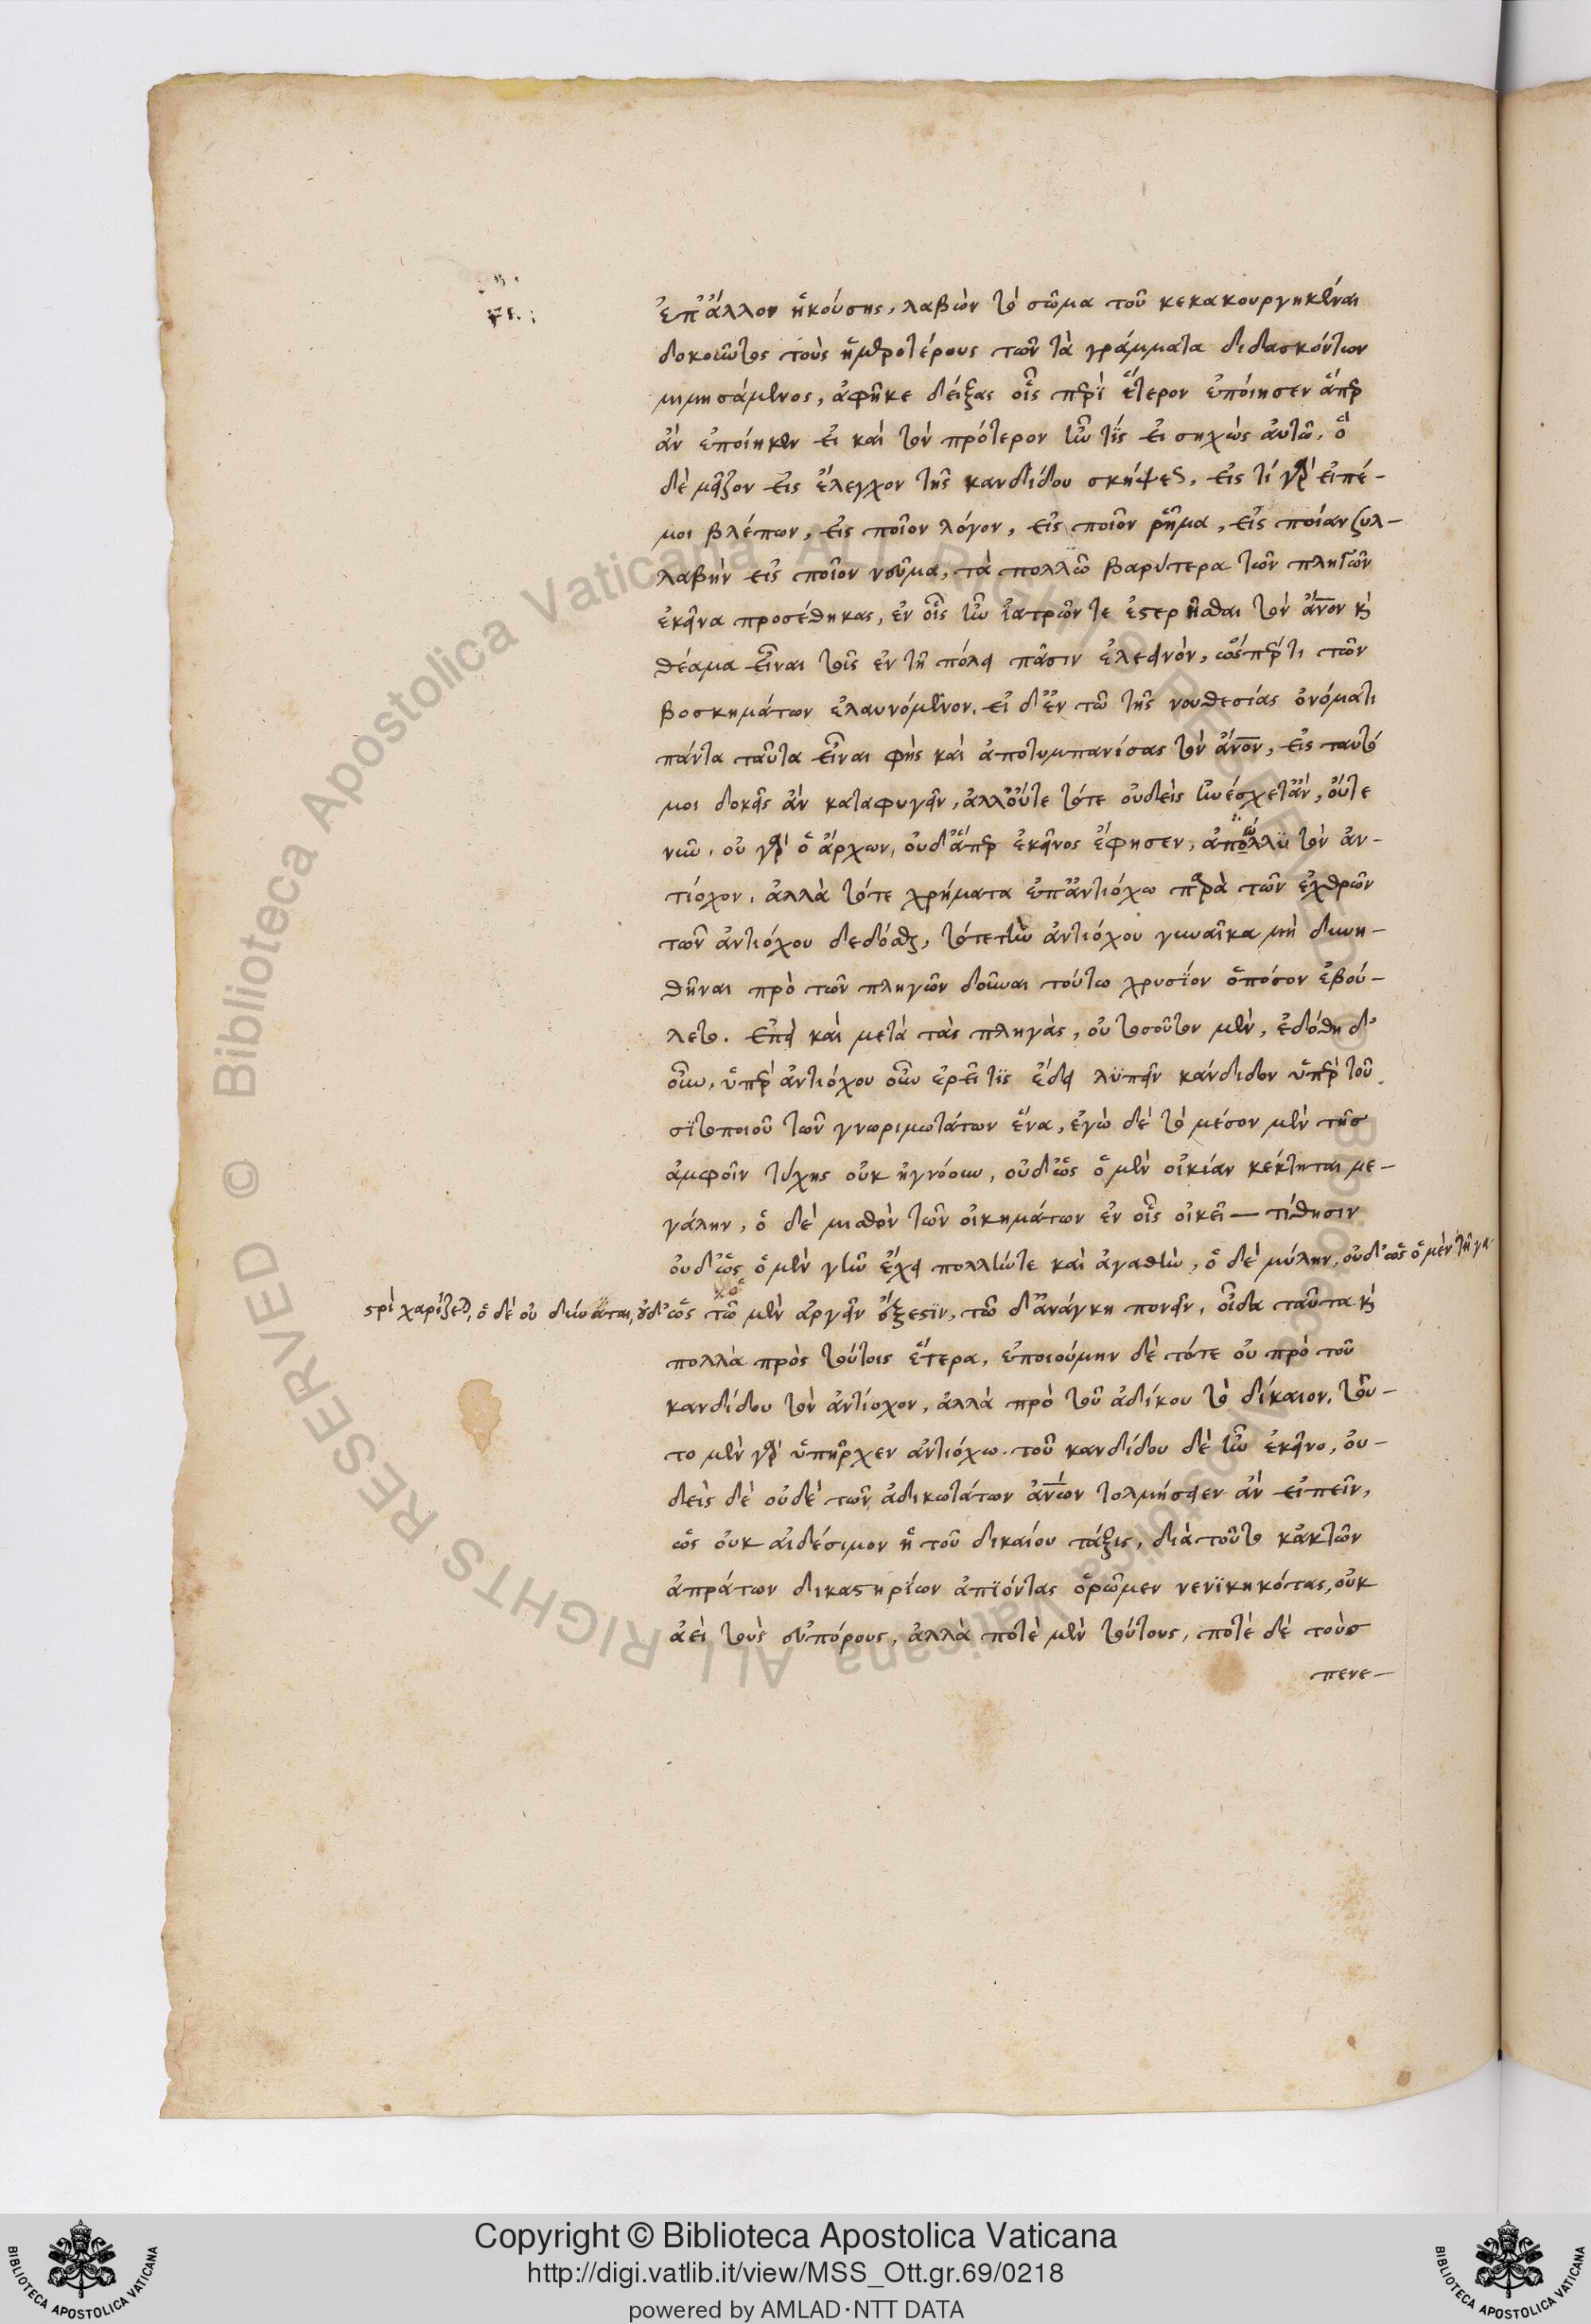 ἐπ' ἄλλον ἡκούσης, λαβὼν τὸ σῶμα τοῦ κεκακουργηκέναι
δοκοῦντος τοὺς ἡμεροτέρους τῶν τὰ γράμματα διδασκόντων
μιμησάμενος, ἀφῆκε δείξας οἷς περὶ ἕτερον ἐποίησεν ἅπερ
ἂν ἐποίησεν εἰ καὶ τὸν πρότερον ἦν τίς αὐτῶ, ὃ
δὲ μεῖζον εἰς ἔλεγχον τῆς κανδίδου σκήψεως, εἰς τί γὰρ εἰπέ-
μοι βλέπων, εἰς ποῖον λόγον, εἰς ποῖον ῥῆμα, εἰς ποίαν συλ-
λαβὴν εἰς ποῖον νεῦμα, τὰ πολλῶ βαρύτερα τῶν πληγῶν
ἐκεῖνα προσέθηκας, ἐν οἷς ἦν ἰατρῶν τε ἐστερῆσθαι τὸν ἄνον καὶ
θέαμα εἶναι τοῖς ἐν τῆ πόλει πᾶσιν ἐλεεινὸν, ὥσπέρ τι τῶν
βοσκημάτων ἐλαυνόμενον. εἰ δ' ἐν τῶ τῆς νουθεσίας ὀνόματι
πάντα ταῦτα εἶναι φὴς καὶ ἀποτυμπανίσας τὸν ἄνον, εἰς ταυτό
μοι δοκεῖς ἂν καταφυγεῖν, ἀλλ' οὔτε τότε οὐδεὶς ἠνέσχετ' ἂν, οὔτε
νῦν. οὐ γὰρ ὁ ἄρχων, οὐδ' ἅπερ ἐκεῖνος ἔφησεν, ἀπώλλυ τὸν ἀν-
τίοχον. ἀλλὰ τότε χρήματα ἐπ' ἀντιόχω παρὰ τῶν ἐχθρῶν
τῶν ἀντιόχου δεδόσθαι, τότε τὴν ἀντιόχου γυναῖκα μὴ δυνη-
θῆναι πρὸ τῶν πληγῶν δοῦναι τούτω χρυσίον ὁπόσον ἐβού-
λετο. ἐπεὶ καὶ μετὰ τὰς πληγὰς, οὐ τοσοῦτον μὲν, ἐδόθη δ'
οὖν, ὑπὲρ ἀντιόχου οὖν ἐρεῖ τις ἔδει λυπεῖν κάνδιδον ὑπὲρ τοῦ
σιτοποιοῦ τῶν γνωριμωτάτων ἕνα, ἐγὼ δὲ τὸ μέσον μὲν τῆς
ἀμφοῖν τύχης οὐκ ἠγνόουν, οὐδ' ὡς ὁ μὲν οἰκίαν κέκτηται με-
γάλην, ὁ δὲ μισθὸν τῶν οἰκημάτων ἐν οἷς οἰκεῖ — τίθησιν
οὐδ' ὡς ὁ μὲν γῆν ἔχει πολλήντε καὶ ἀγαθὴν, ὁ δὲ μύλην, οὐδ' ὡς ὁ μὲν τῆ γα-
στρὶ χαρίζεται, ὁ δὲ οὐ δύναται, οὐδ' ὡς τῶ μὲν ἀργεῖν ἔξεστιν, τῶ δ' ἀνάγκη πονεῖν, οἶδα ταῦτα καὶ
πολλὰ πρὸς τούτοις ἕτερα, ἐποιούμην δὲ τότε οὐ πρὸ τοῦ
κανδίδου τὸν ἀντίοχον, ἀλλὰ πρὸ τοῦ ἀδίκου τὸ δίκαιον. τοῦ-
το μὲν γὰρ ὑπῆρχεν ἀντιόχω. τοῦ κανδίδου δὲ ἦν ἐκεῖνο, οὐ-
δεὶς δὲ οὐδὲ τῶν ἀδικωτάτων ἀνων τολμήσειεν ἂν εἰπεῖν,
ὡς οὐκ αἰδέσιμον ἡ τοῦ δικαίου τάξις, διὰ τοῦτο κἀκ τῶν
ἀπράτων δικαστηρίων ἀπιόντας ὁρῶμεν νενικηκότας, οὐκ
ἀεὶ τοὺς εὐπόρους, ἀλλὰ ποτὲ μὲν τούτους, ποτὲ δὲ τοὺς
πενε-
Copyright © Biblioteca Apostolica Vaticana
http://digi.vatlib.it/view/MSS_Ott.gr.69/0218
powered by AMLAD·NTT DATA
BIBLIOTECA APOSTOLICA VATICANA
BIBLIOTECA APOSTOLICA VATICANA
© Biblioteca Apostolica Vaticana ALL RIGHTS RESERVED
© Biblioteca Apostolica Vaticana ALL RIGHTS RESERVED